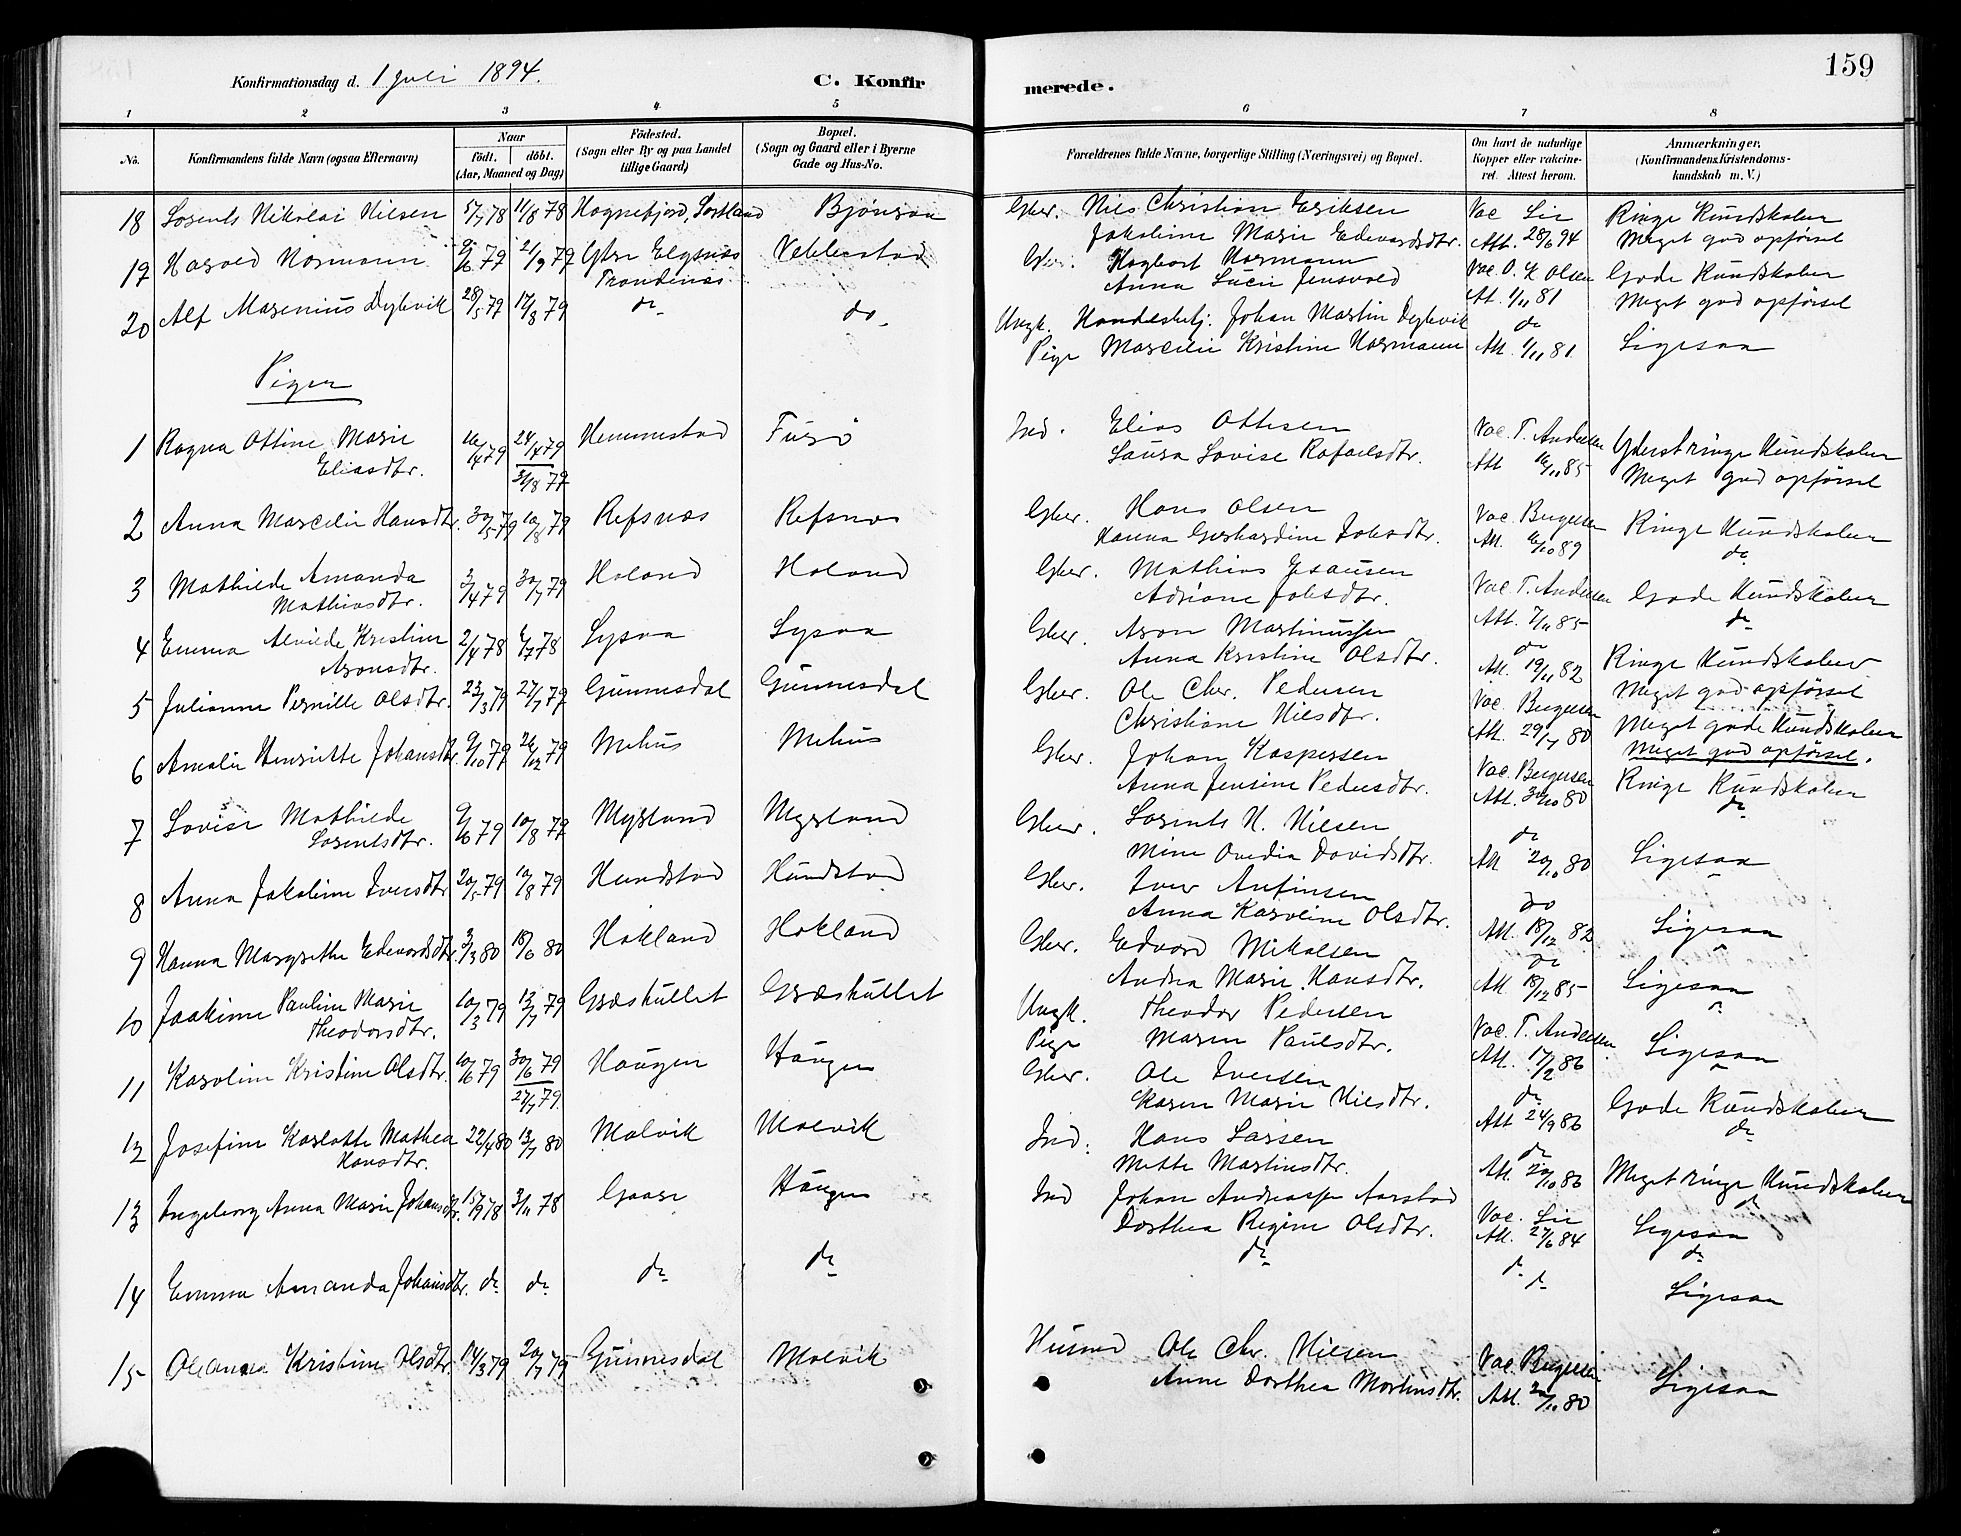 159
Konfirmationsdag d. 1 Juli 1894.
C. Konfirmerede.
1 2 3 4 5 6 7 8
No.
Konfirmandens fulde Navn (ogsaa Efternavn)
Naar
födt. döbt.
(Aar, Maaned og Dag)
Födested.
(Sogn eller By og paa Landet
tillige Gaard)
Bopæl.
(Sogn og Gaard eller i Byerne
Gade og Hus-No.
Forældrenes fulde Navne, borgerlige Stilling (Næringsvei) og Bopæl.
Om havt de naturlige
Kopper eller vakcine-
ret. Attest herom.
Anmærkninger,
(Konfirmandens Kristendoms-
kundskab m. V.)
18 Lorents Nikolai Nilsen 5/7 78 11/8 78 Hognefjord, Sortland Gber. Nils Christian Eriksen Vac Lie Ringe Kundskaber
Jakobine Marie Edvardsdtr. Att. 28/6 94 Meget god opførsel
19 Harald Normann 79 21/9 79 Ytre Elgsnæs Vebbestad Gber. Hagbart Normann Vac. O. K. Olsen Gode Kundskaber
Trondenæs Anna Lucie Jensvold At. 1/11 81 Meget god opførsel
20 Alf Marenius Dybvik 28/5 79 17/8 79 do do Ungk. Handelsbetj. Johan Martin Dybvik do Ligesaa
Pige Marcelie Kristine Normann Att. 1/11 81
Piger
1 Ragna Ottine Marie 16/4 79 24/4 79 Hemmestad Fusø Ind. Elias Ottesen Vac. T. Andersen Yderst ringe Kundskaber
Eliasdtr. 31/8 79 Laura Lovise Rafaelsdtr. Att 16/11 85 Meget god opførsel
2 Anna Marcelie Hansdtr. 30/5 79 10/8 79 Refsnæs Refsnæs Gber. Hans Olsen Vac. Bergesen Ringe Kundskaber
Hanna Gerhardine Jobsdtr. Att. 16/10 89 do
3 Mathilde Amanda 3/4 79 30/7 79 Holand Holand Gber. Mathias Esausen Vac. T. Andersen Gode Kundskaber
Mathiasdtr. Adriane Jobsdtr. Att. 7/11 85 do
4 Emma Alvilde Kristine 2/4 78 78 Lysaa Lysaa Gber. Aron Martinussen do Ringe Kundskaber
Aronsdtr. Anna Kristine Olsdtr. Att. 19/11 82 Meget god opførsel
5 Julianne Pernille Olsdtr. 23/3 79 27/7 79 Gunnesdal Gunnesdal Gber. Ole Chr. Pedersen Vac. Bergesen Meget gode Kundskaber
Christiane Nilsdtr. Att. 29/7 80 Meget god opførsel.
6 Amalie Henriette Johansdtr. 9/10 79 26/12 79 Mehus Mehus Gber. Johan Kaspersen Vac. Bergesen Ringe Kundskaber
Anna Jensine Pedersdtr. Att. 30/10 80 do
7 Lovise Mathilde 79 10/8 79 Mysland Mysland Gber. Lorents N. Nilsen do Ligesaa
Lorentsdtr. Mine Ovedia Davidsdtr. Att 20/10 80
8 Anna Jakobine Iversdtr. 20/5 79 10/8 79 Hundstad Hundstad Gber. Iver Anfinsen do Ligesaa
Anna Karoline Olsdtr. Att. 18/12 82
9 Hanna Margrethe Edvardsdtr. 3/3 80 18/6 80 Hokland Hokland Gber. Edvard Mikalsen do Ligesaa
Andrea Marie Hansdtr. Att 18/12 85
10 Joakime Pauline Marie 10/3 79 13/7 79 Græshullet Græshullet Ungk. Theodor Pedersen Vac. T. Andersen Ligesaa
Theodorsdtr. Pige Maren Paulsdtr. Att. 17/2 86
11 Karoline Kristine Olsdtr. 10/6 79 30/6 79 Haugen Haugen Gber. Ole Iversen do Gode Kundskaber
27/7 79. Karen Marie Nilsdtr. Att 24/9 86 do
12 Josefine Karlotte Mathea 22/4 80 13/7 80 Molvik Molvik Ind. Hans Larsen do Meget ringe Kundskaber
Hansdtr. Mette Martinsdtr. Att. 20/10 86 do
13 Ingeborg Anna Marie Johansdtr. 15/9 78 3/11 78 Gaare Haugen Ind Johan Andreassen Aarstad Vac. Lie Ligesaa
Dorthea Regine Olsdtr. Att. 27/6 84 do
14 Emma Amanda Johansdtr. do do do do do do do Ligesaa
15 Oleanna Kristine Olsdtr. 14/3 79 20/7 79 Gunnesdal Molvik Husmd Ole Chr. Nilsen Vac. Bergesen Ligesaa
Anne Dorthea Martinsdtr. Att. 20/10 80